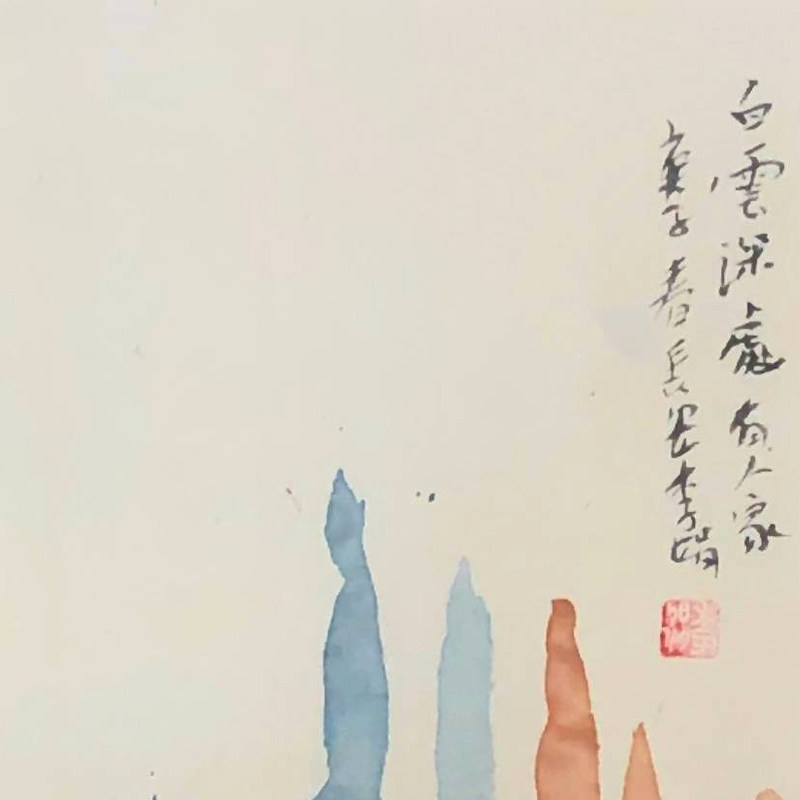 白雲深處有人家
庚子春長安李